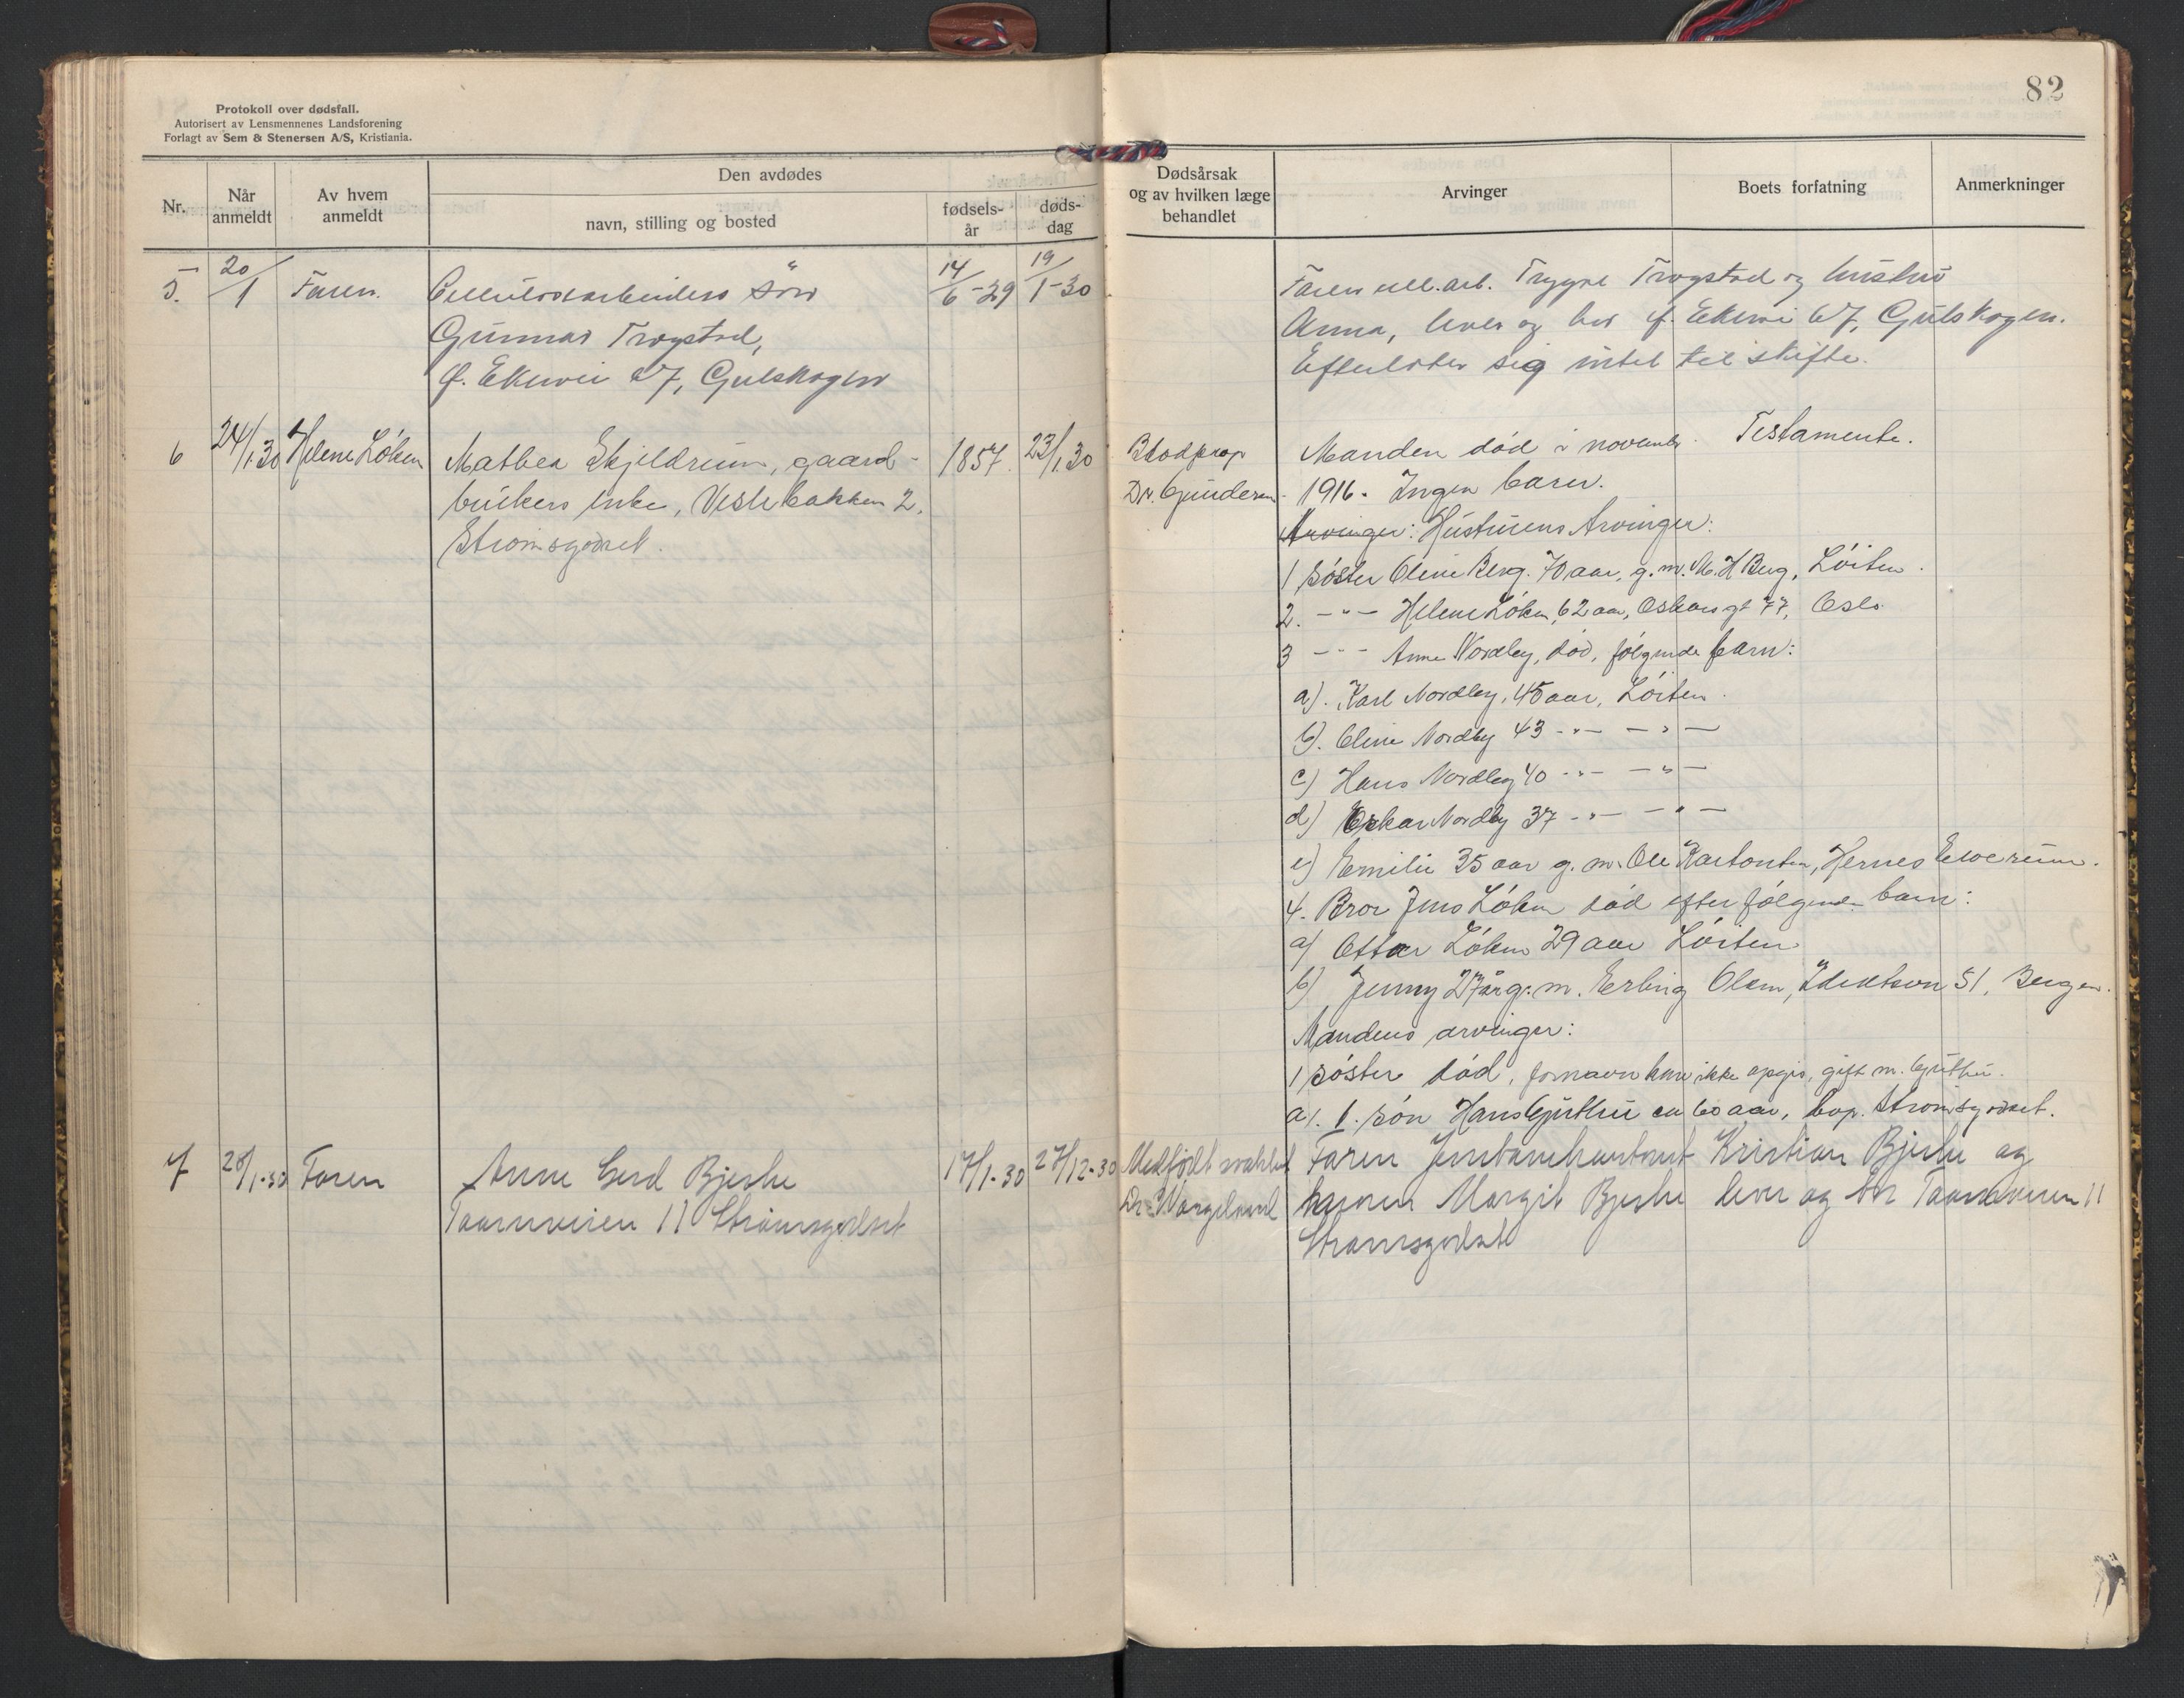 82
Protokoll over dødsfall.
Autorisert av Lensmennenes Landsforening
Forlagt av Sem & Stenersen A/S, Kristiania.
Nr.
Når anmeldt
Av hvem anmeldt
Den avdødes
navn, stilling og bosted
fødsels-år
døds-dag
Dødsårsak og av hvilken læge behandlet
Arvinger
Boets forfatning
Anmerkninger
5. 20/1 Faren. Cellulosearbeiders søn 14/6-29 19/1-30
Gunnar Trøgstad,
f. Ekevei 27, Gulskogen
Faren cell.arb. Trygve Trøgstad og hustru
Anna, lever og bor f. Ekevei 27, Gulskogen.
Efterlater sig intet til skifte.
6 24/1 30 Helene Løken Mathea Skjeldrum, gaard- 1857. 23/1 30
brukers enke, Veslebakken 2,
Strømsgodset.
Blodprop
Dr. Gundersen
Manden død i novembr. Testamente.
1916. Ingen barn.
Arvinger: Hustruens Arvinger:
1 Søster Oline Berg. 70 aar, g.m. M. H Berg, Løiten.
2. -"- Helene Løken, 62 aar, Oskars gt 77, Oslo
3 -"- Anne Nordby, død, følgende barn:
a). Karl Nordby, 45 aar, Løiten.
b). Oline Nordby 43 -"- -"-
c) Hans Nordby 40 -"- -"-
d) Oskar Nordby 37 -"- -"-
e) Emilie 35 aar g. m. Ole Hernes Elverum.
4. Bror Jens Løken død efter følgende barn:
a) Ottar Løken 29 aar Løiten
b) Jenny 27 år g. m. Erling Olsen, 51, Bergen.
Mandens arvinger:
1 Søster død, fornavn kan ikke opgis, gift m. Guthu.
a). 1. søn Hans Guthu ca 60 aar, bop. Strømsgodset.
7 28/1-30 Faren Anne Gerd Bjerke 17/1-30 27/12-30
Taarnveien 11 Strømsgodset
Medfødt svakhet
Dr. Wergeland
Faren Kristian Bjerke og
konen Margit Bjerke lever og bor Taarnveien 11
Strømsgodset